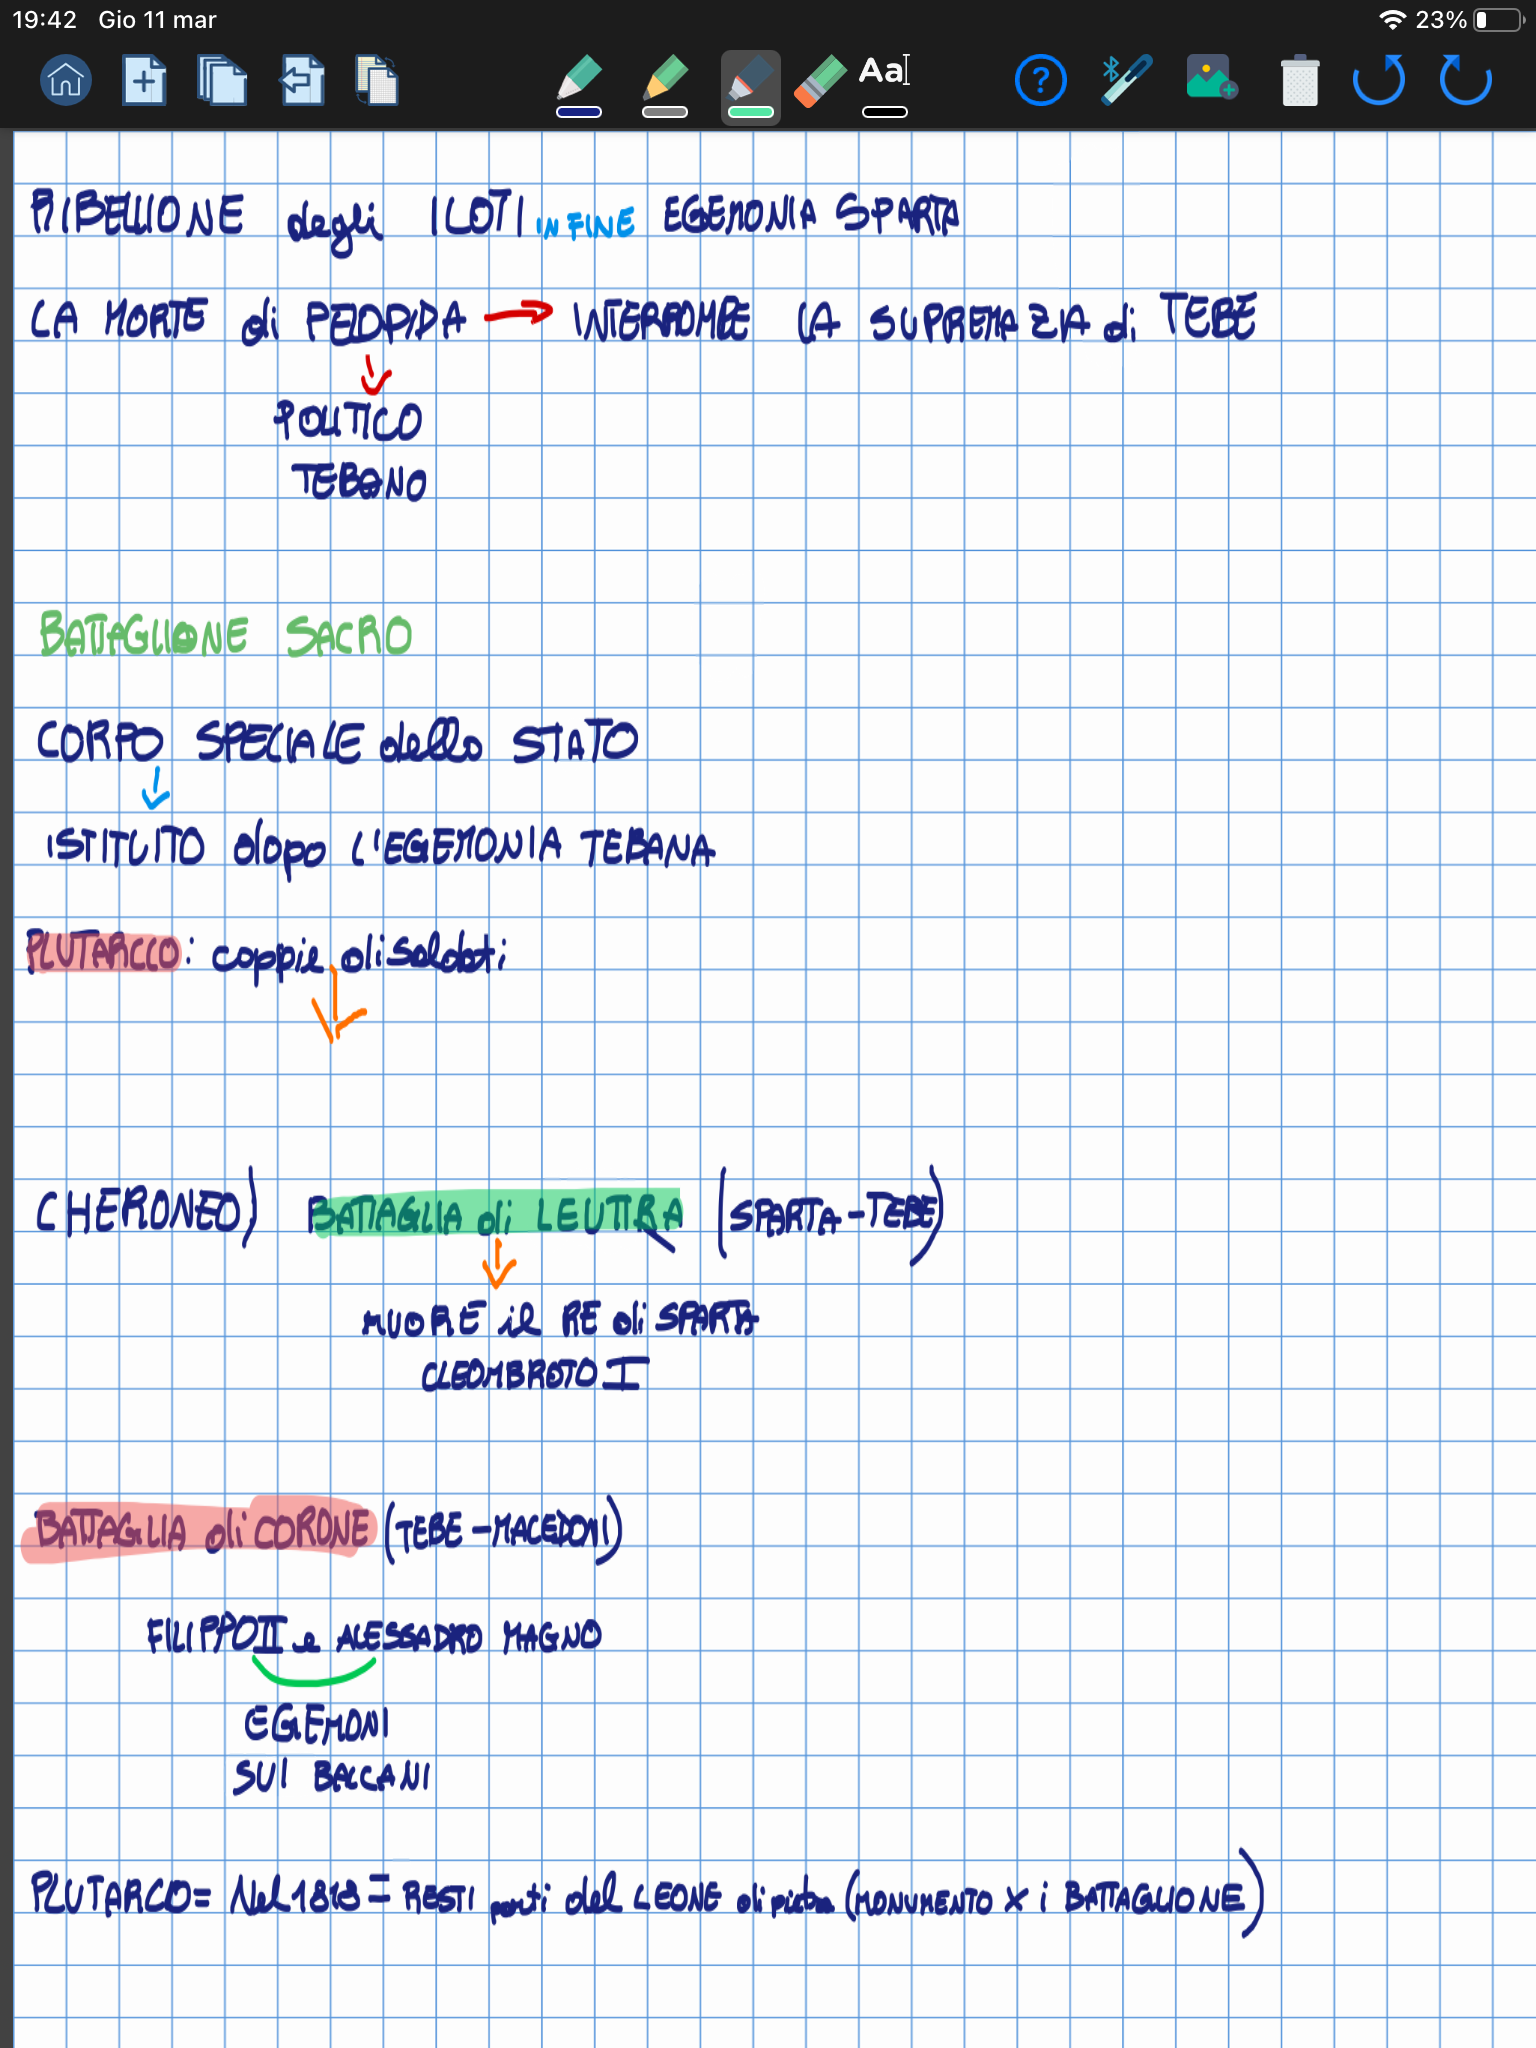 19:42 Gio 11 mar 23%
Aa
RIBELLIONE degli ILOTI IN FINE EGEMONIA SPARTA
LA MORTE di PEOPIDA → INTERROMBE LA SUPREMAZIA di TEBE
POLITICO
TEBANO
BATTAGLIONE SACRO
CORPO SPECIALE dello STATO
ISTITUITO dopo L'EGEMONIA TEBANA
PLUTARCCO: coppie di soldati
CHERONEO) BATTAGLIA di LEUTTRA (SPARTA-TEBE)
MUORE il RE di SPARTA
CLEOMBROTO I
BATTAGLIA di CORONE (TEBE-MACEDONI)
FILIPPO II e ALESSADRO MAGNO
EGEMONI
SUI BALCANI
PLUTARCO= Nel 1818 = RESTI parti del LEONE di pietra (MONUMENTO X i BATTAGLIONE)